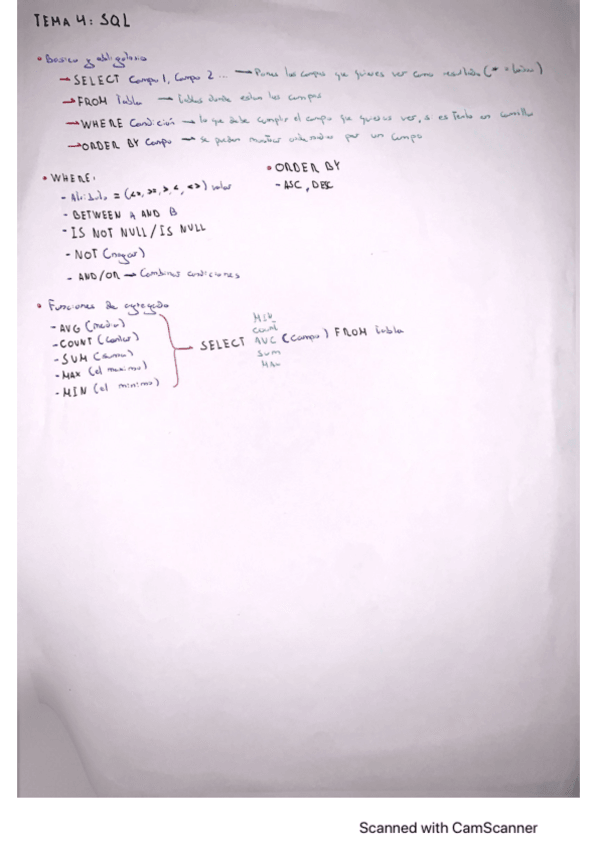 TEMA 4: SQL
• Basico y obligatorio
→ SELECT Campo 1, Campo 2 ... → Pones los campos que quieres ver como resultado (* =
→ FROM Tabla → tablas donde estan los campos
→ WHERE Condición → lo que debe cumplir el campo que quieras ver, si es texto en comillas
→ ORDER BY Campo → se pueden mostrar ordenados por un campo
• WHERE:
- = (<=, >=, >, <, <>) valor
- BETWEEN A AND B
- IS NOT NULL / IS NULL
- NOT (negar)
- AND/OR → Combinar condiciones
• ORDER BY
- ASC, DESC
• Funciones de agregado
- AVG (media)
- COUNT (contar)
- SUM (suma)
- MAX (el maximo)
- MIN (el minimo)
MIN
COUNT
SELECT AVG (Campo) FROM Tabla
SUM
MAX
Scanned with CamScanner